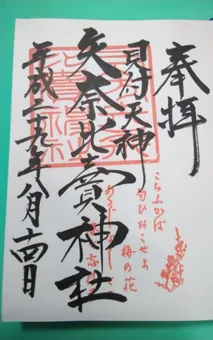 奉拝
見付天神
矢奈比賣神社
平成二十九年八月十四日
こちふかば
匂ひおこせよ
梅の花